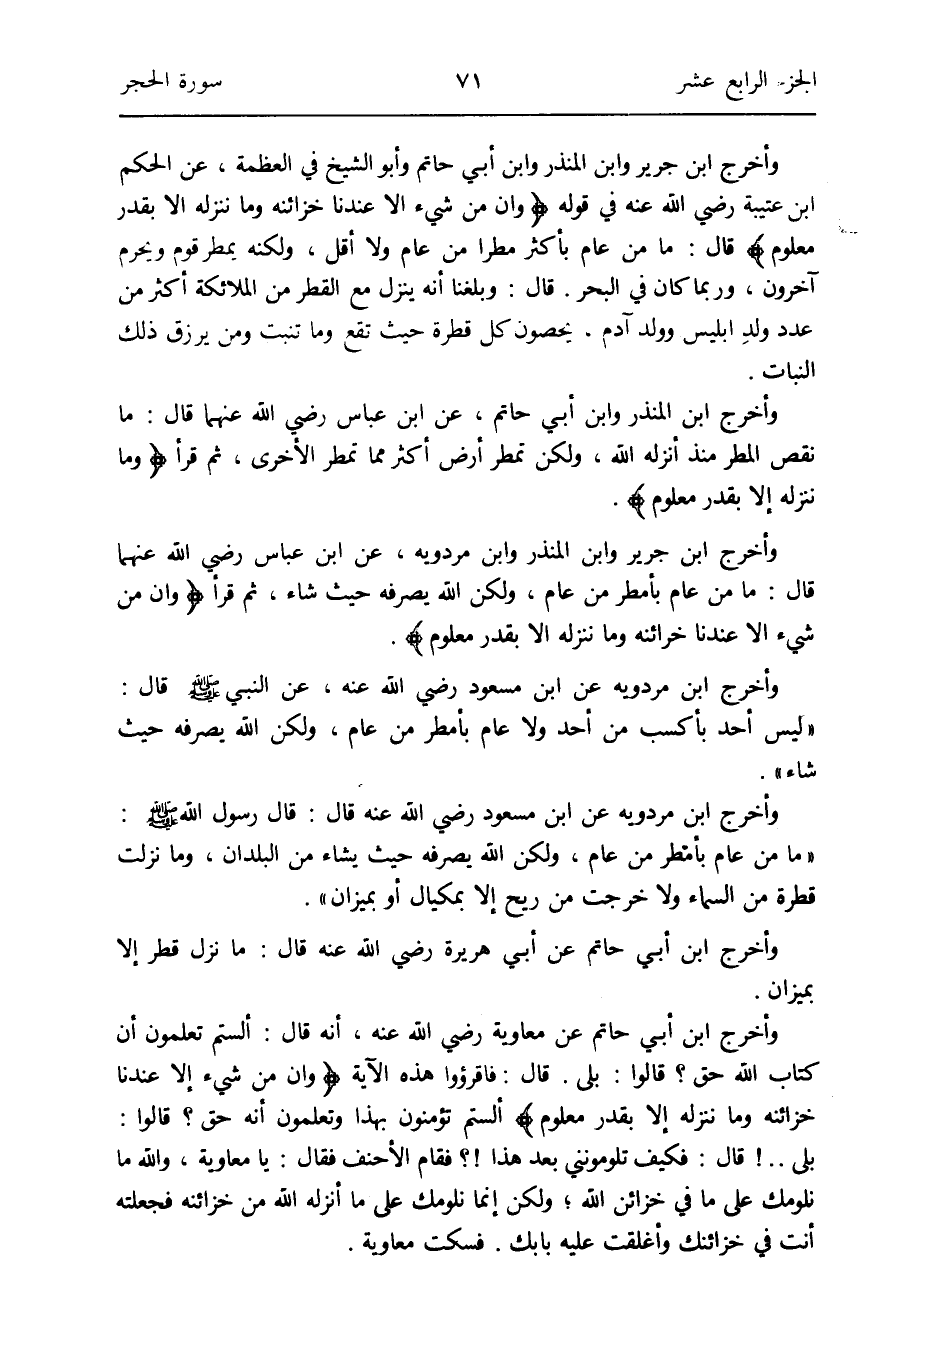 الجزء الرابع عشر ٧١ سورة الحجر
وأخرج ابن جرير وابن المنذر وابن أبي حاتم وأبو الشيخ في العظمة ، عن الحكم
ابن عتيبة رضي الله عنه في قوله ﴿ وان من شيء الا عندنا خزائنه وما ننزله الا بقدر
معلوم ﴾ قال : ما من عام بأكثر مطرا من عام ولا أقل ، ولكنه يمطر قوم ويحرم
آخرون ، وربما كان في البحر . قال : وبلغنا أنه ينزل مع القطر من الملائكة أكثر من
عدد ولدِ ابليس وولد آدم . يحصون كل قطرة حيث تقع وما تنبت ومن يرزق ذلك
النبات .
وأخرج ابن المنذر وابن أبي حاتم ، عن ابن عباس رضي الله عنهما قال : ما
نقص المطر منذ أنزله الله ، ولكن تمطر أرض أكثر مما تمطر الأخرى ، ثم قرأ ﴿ وما
ننزله إلا بقدر معلوم ﴾ .
وأخرج ابن جرير وابن المنذر وابن مردويه ، عن ابن عباس رضي الله عنهما
قال : ما من عام بأمطر من عام ، ولكن الله يصرفه حيث شاء ، ثم قرأ ﴿ وان من
شيء الا عندنا خزائنه وما ننزله الا بقدر معلوم ﴾ .
وأخرج ابن مردويه عن ابن مسعود رضي الله عنه ، عن النبي ﷺ قال :
«ليس أحد بأكسب من أحد ولا عام بأمطر من عام ، ولكن الله يصرفه حيث
شاء» .
وأخرج ابن مردويه عن ابن مسعود رضي الله عنه قال : قال رسول الله ﷺ :
«ما من عام بأمطر من عام ، ولكن الله يصرفه حيث يشاء من البلدان ، وما نزلت
قطرة من السماء ولا خرجت من ريح إلا بمكيال أو بميزان» .
وأخرج ابن أبي حاتم عن أبي هريرة رضي الله عنه قال : ما نزل قطر إلا
بميزان .
وأخرج ابن أبي حاتم عن معاوية رضي الله عنه ، أنه قال : ألستم تعلمون أن
كتاب الله حق ؟ قالوا : بلى . قال : فاقرؤوا هذه الآية ﴿ وان من شيء إلا عندنا
خزائنه وما ننزله إلا بقدر معلوم ﴾ ألستم تؤمنون بهذا وتعلمون أنه حق ؟ قالوا :
بلى ..! قال : فكيف تلومونني بعد هذا !؟ فقام الأحنف فقال : يا معاوية ، والله ما
نلومك على ما في خزائن الله ؛ ولكن إنما نلومك على ما أنزله الله من خزائنه فجعلته
أنت في خزائنك وأغلقت عليه بابك . فسكت معاوية .